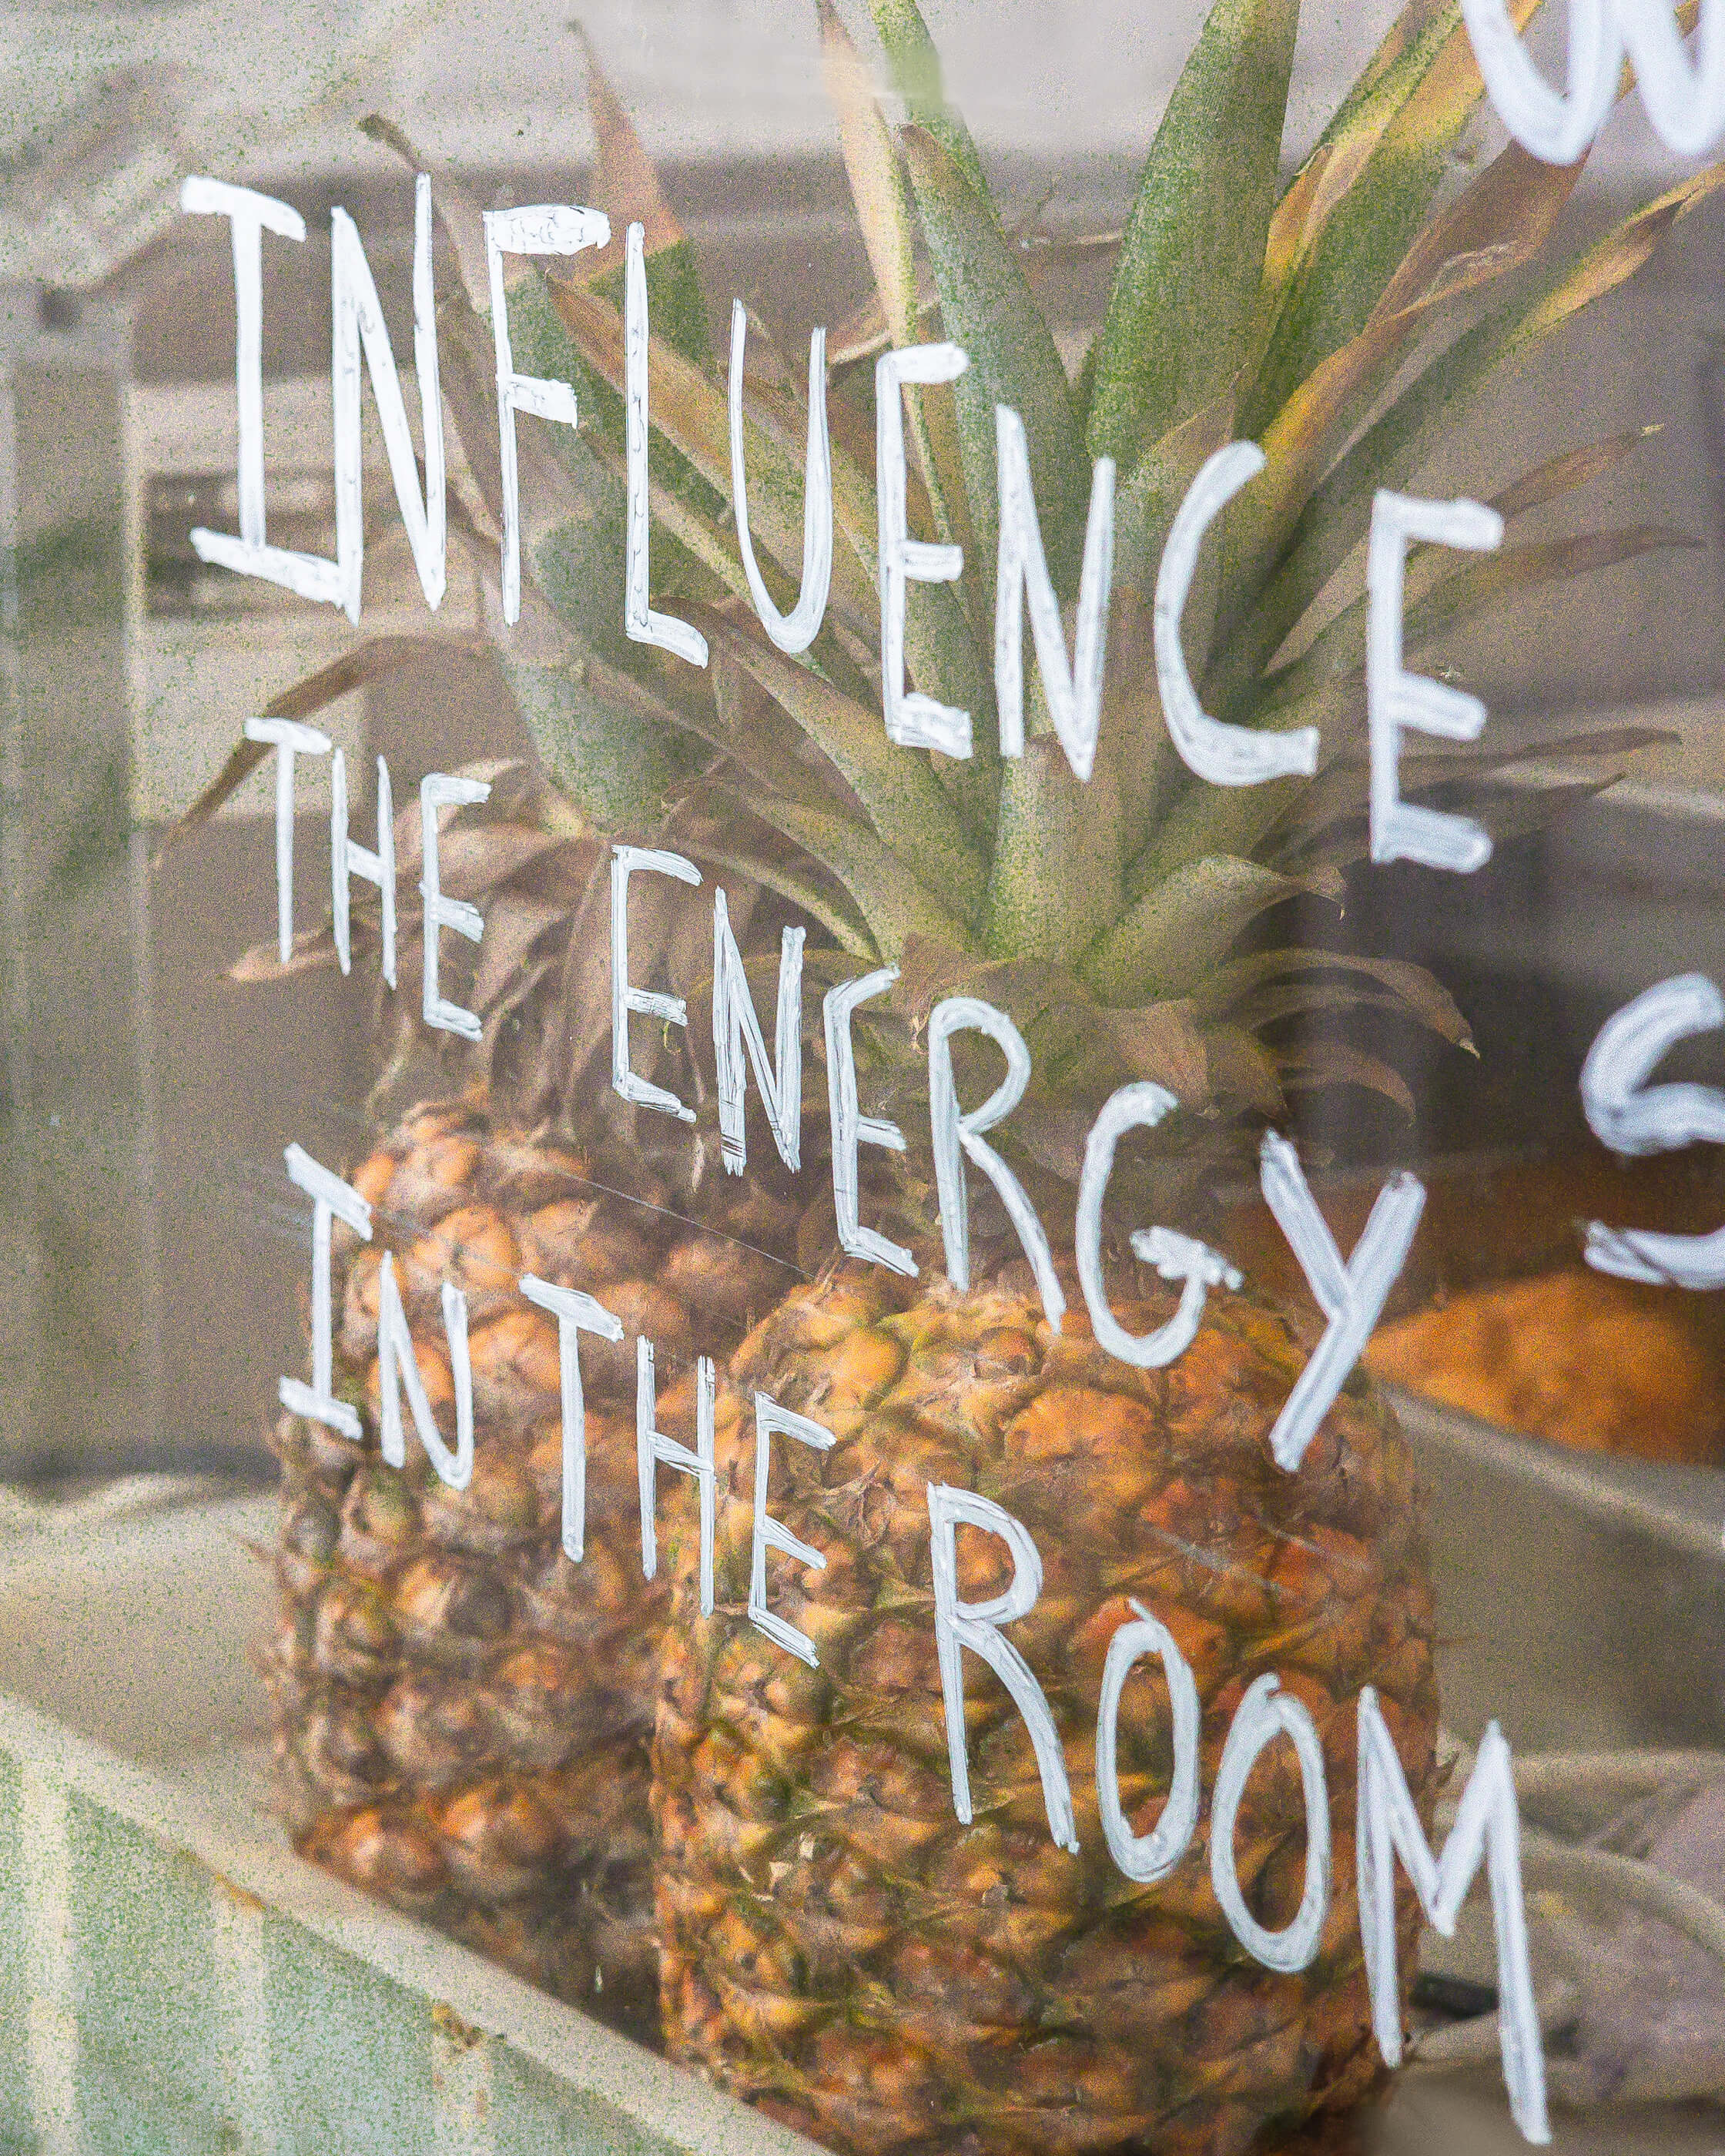 INFLUENCE
THE ENERGY
IN THE ROOM